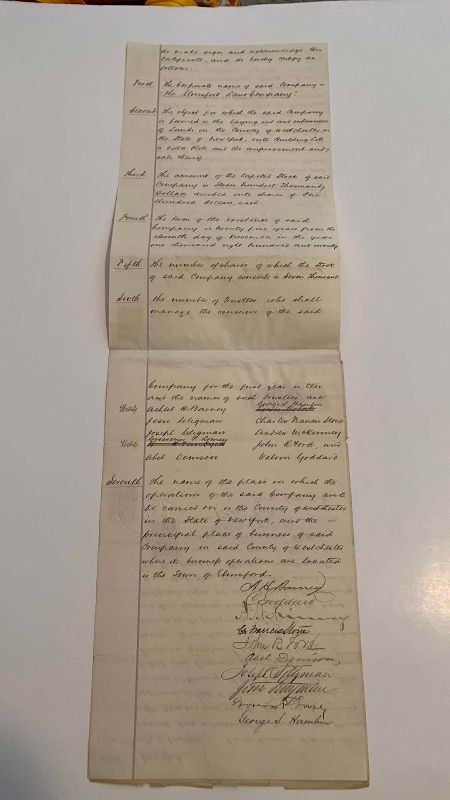 do make sign and acknowledge this
Certificate, and do hereby certify as
follows.
First. The Corporate name of said Company is
"The Elmsford Land Company."
Second The object for which the said Company
is formed is the laying out and subdivision
of Lands in the County of Westchester, in
the State of New York, into Building Lots
or Villa Plots and the improvement and
sale thereof
Third. The amount of the Capital Stock of said
Company is Seven hundred Thousand
Dollars divided into shares of One
Hundred Dollars each.
Fourth The term of the existence of said
Company is twenty five years from the
eleventh day of November in the year
one thousand eight hundred and ninety
Fifth The number of shares of which the Stock
of said Company consists is Seven Thousand
Sixth The number of Trustees who shall
manage the concerns of the said
Company for the first year is ten
and the names of such Trustees are
George S. Hamlin
Ashbel H. Barney
Jesse Seligman Charles Francis Stone
Joseph Seligman Andrew McKinney
John R. Ford, and
Abel Denison Watson Goddard
Seventh The name of the place in which the
operations of the said Company are to
be carried on is the County of Westchester
in the State of New York, and the
principal place of business of said
Company in said County of Westchester
where its business operations are located
is the Town of Elmsford.
A H Barney
Goddard
McKinney
Ch Francis Stone
John R. Ford
Abel Denison
Joseph Seligman
Jesse Seligman
George S. Hamlin